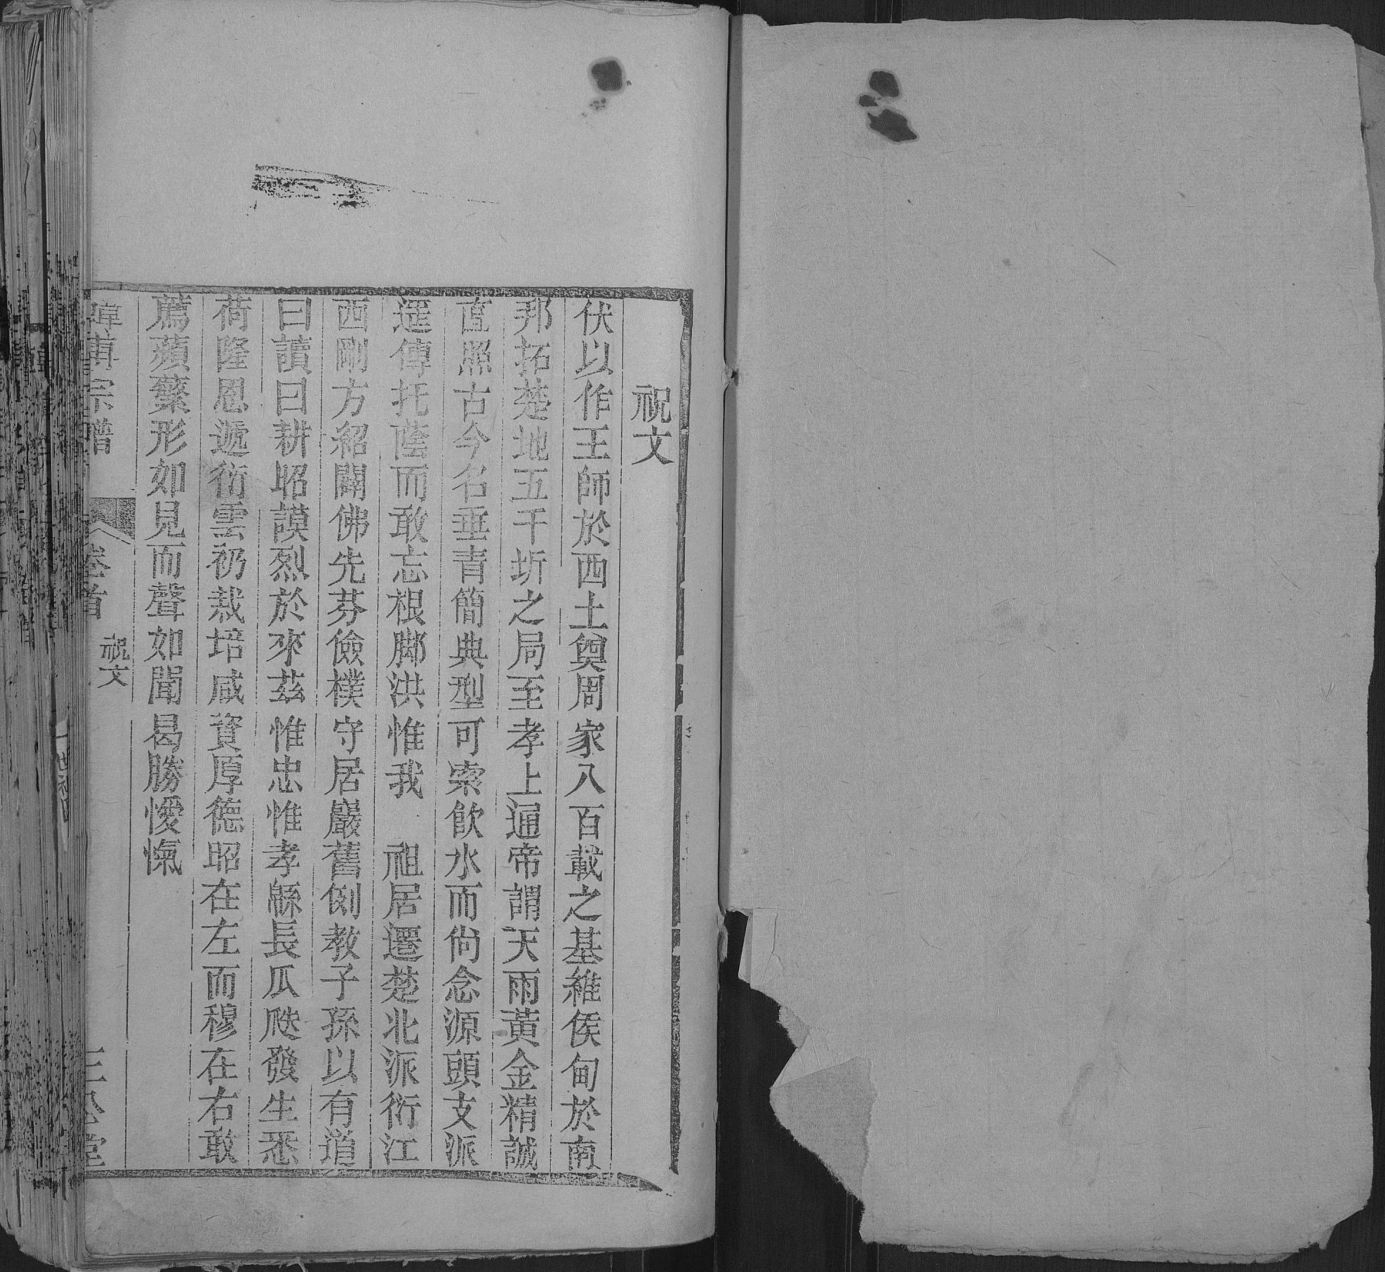 祝文
伏以作王師於西土奠周家八百載之基維侯甸於南
邦拓楚地五千圻之局至孝上通帝謂天雨黃金精誠
直照古今名垂青簡典型可索飲水而尙念源頭支派
遥傳托蔭而敢忘根脚洪惟我 祖居遷楚北派衍江
西剛方紹闢佛先芬儉樸守居巖舊例教子孫以有道
曰讀曰耕昭謨烈於來茲惟忠惟孝緜長瓜瓞發生悉
荷隆恩遞衍雲礽栽培咸資厚德昭在左而穆在右敢
薦蘋蘩形如見而聲如聞曷勝慢愾
韓車宗譜 卷首 祝文